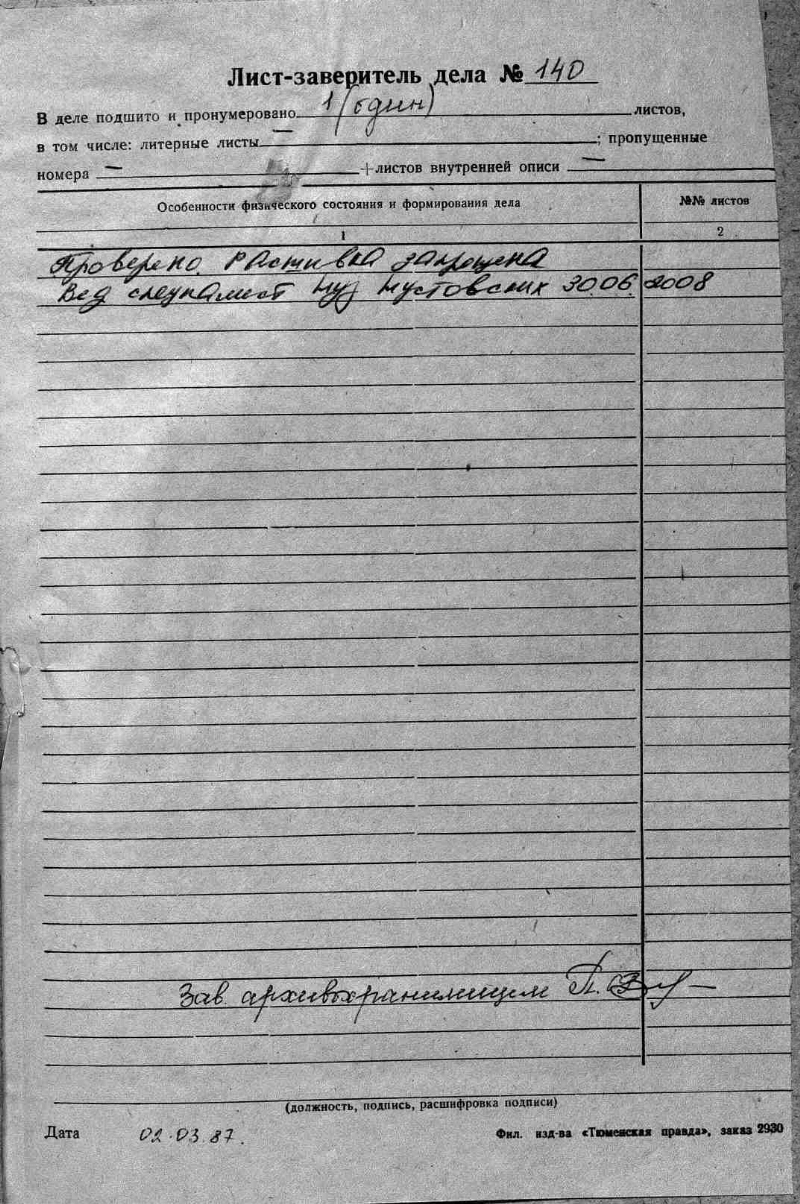 Лист-заверитель дела № 140
В деле подшито и пронумеровано 1 (один) листов,
в том числе: литерные листы — ; пропущенные
номера — +листов внутренней описи —
Особенности физического состояния и формирования дела №№ листов
1 2
Проверено. Расшивка запрещена
Вед специалист Кустовских 30.06.2008
Зав. архивохранилищем
(должность, подпись, расшифровка подписи)
Дата 02.03.87. Фил. изд-ва «Тюменская правда», заказ 2930